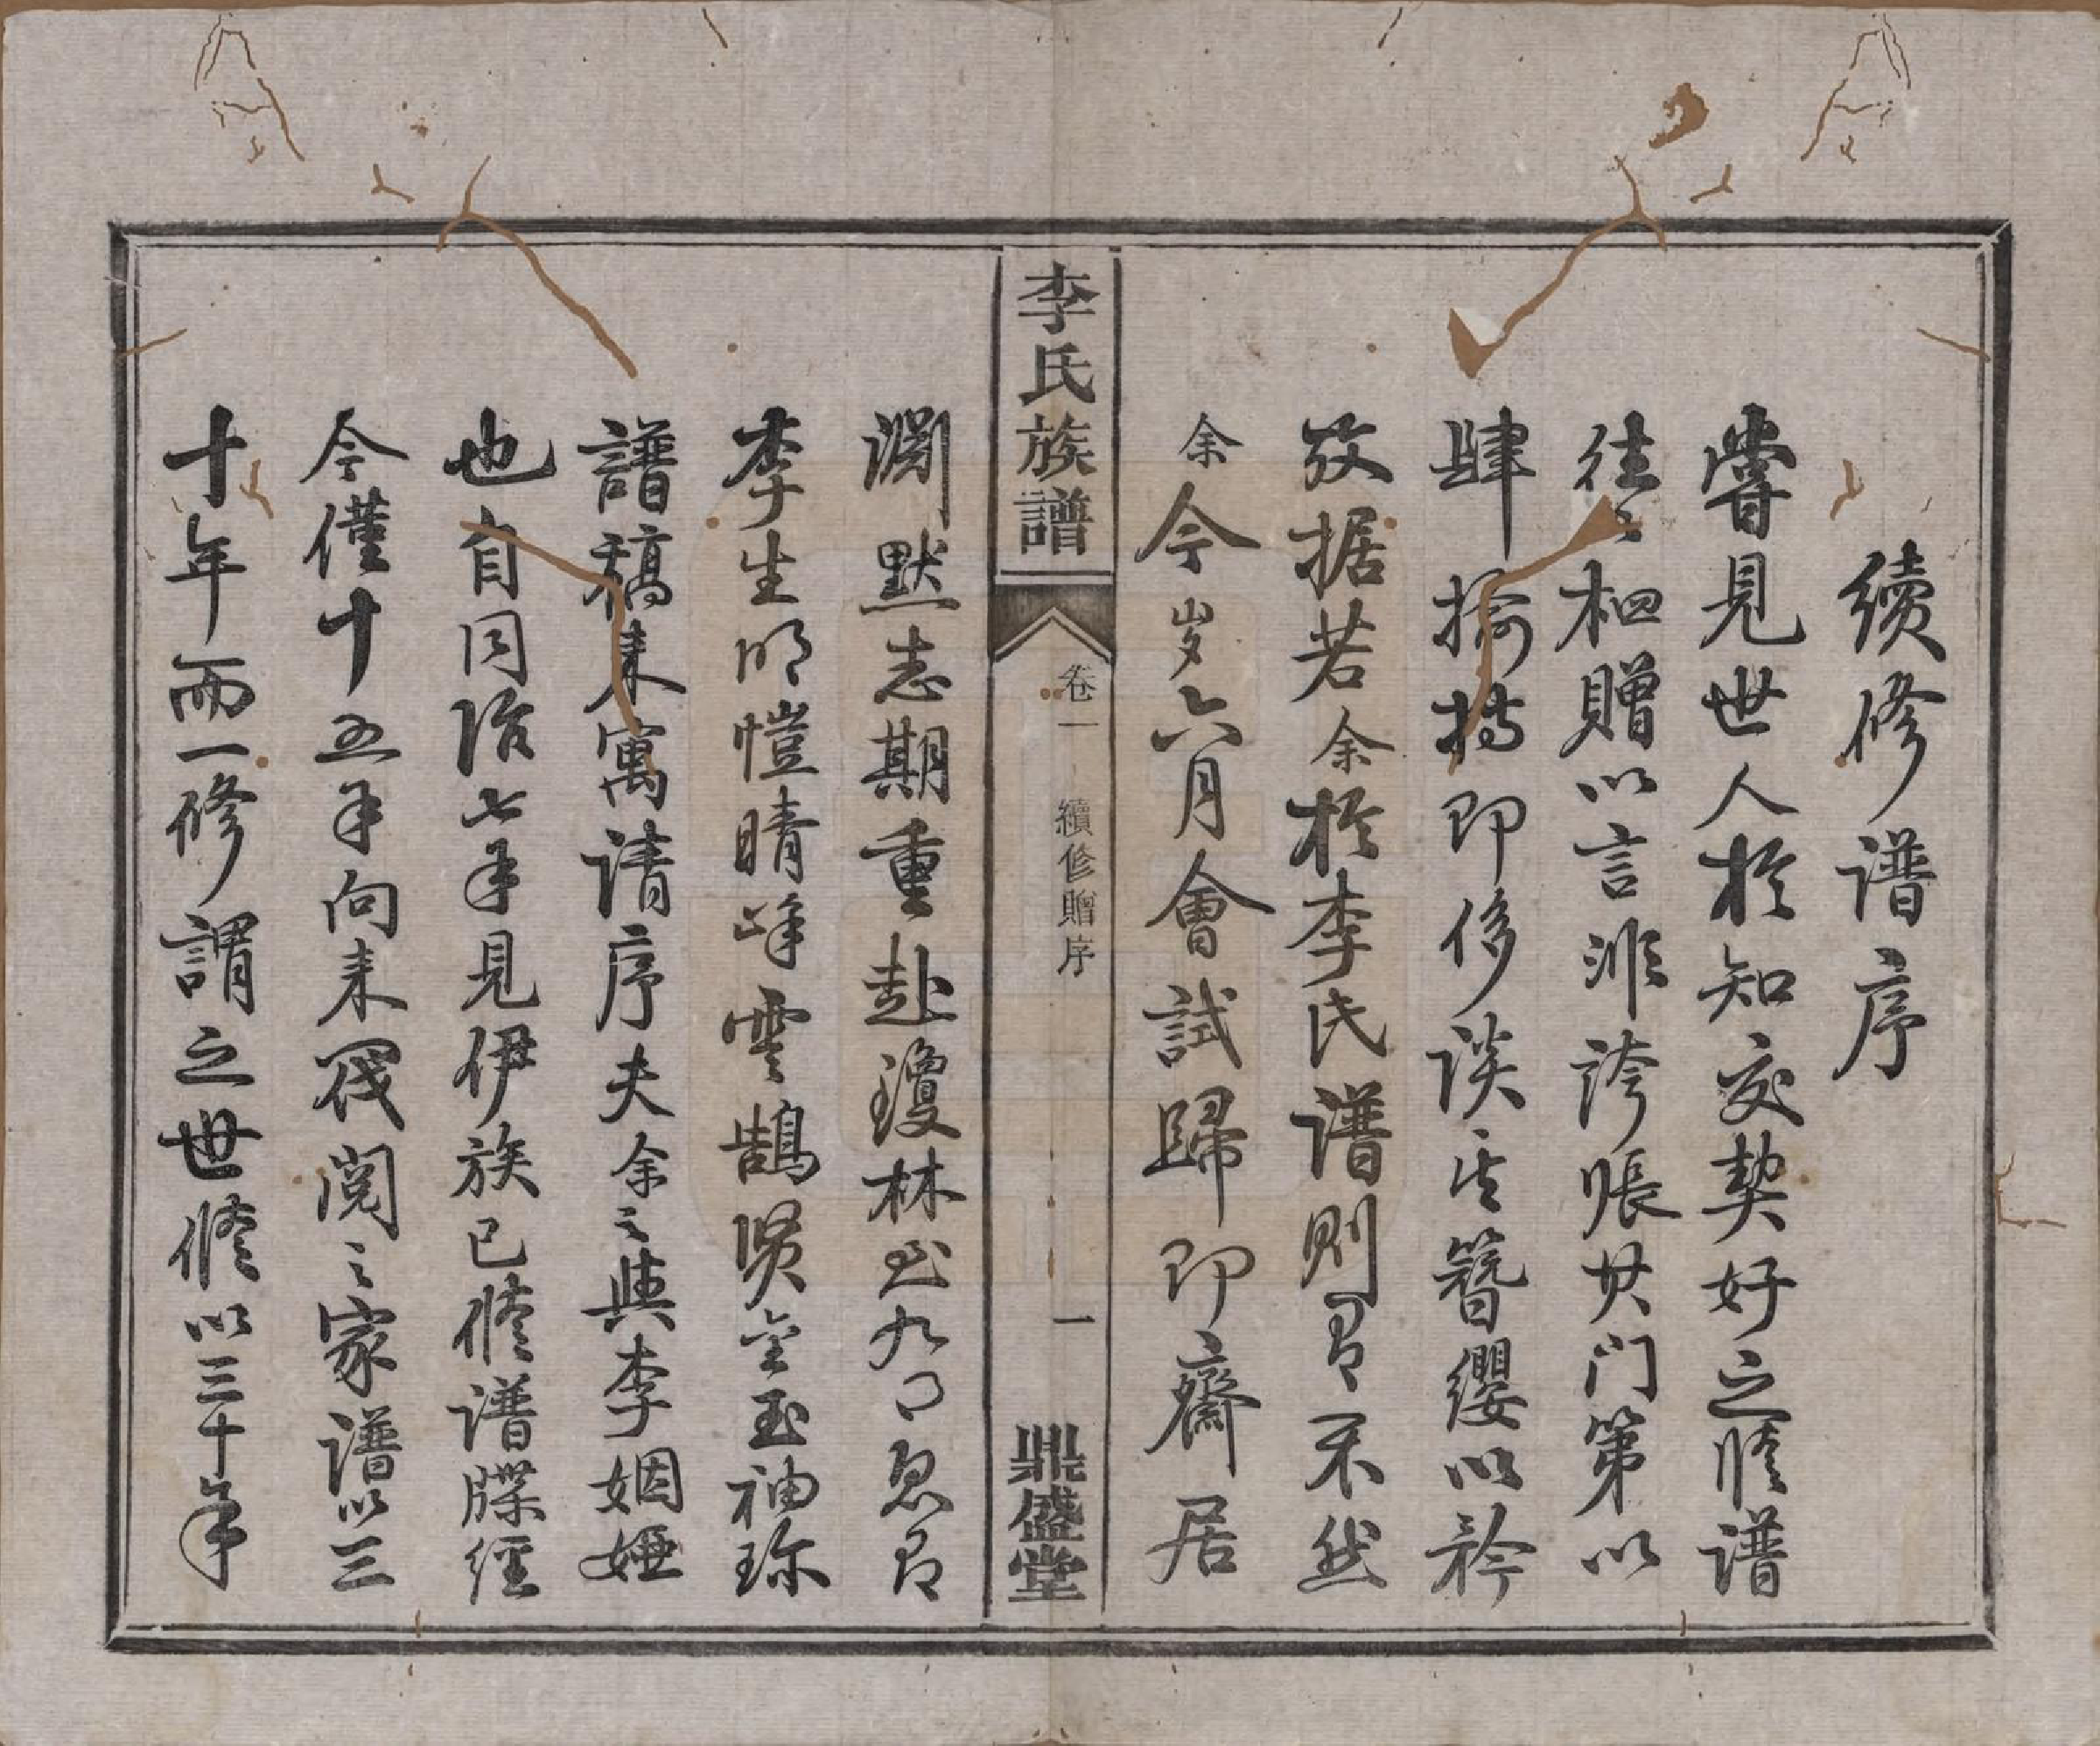 續修譜序
嘗見世人於知交契好之修譜
往〻相贈以言非誇張其门第以
肆揄揚即侈談其簪纓以矜
考据若余於李氏譜則有不然
余今岁六月會試歸即齋居
李氏族譜
卷一
續修贈序
一
鼎盛堂
淵默志期重赴瓊林止九月忽有
李生明愷晴峰雲鵠賢金玉袖珍
譜稿来寓请序夫余之與李姻婭
也自同治七年見伊族已修谱牒经
今僅十五年向来罰阅之家譜以三
十年而一修謂之世修以三十年